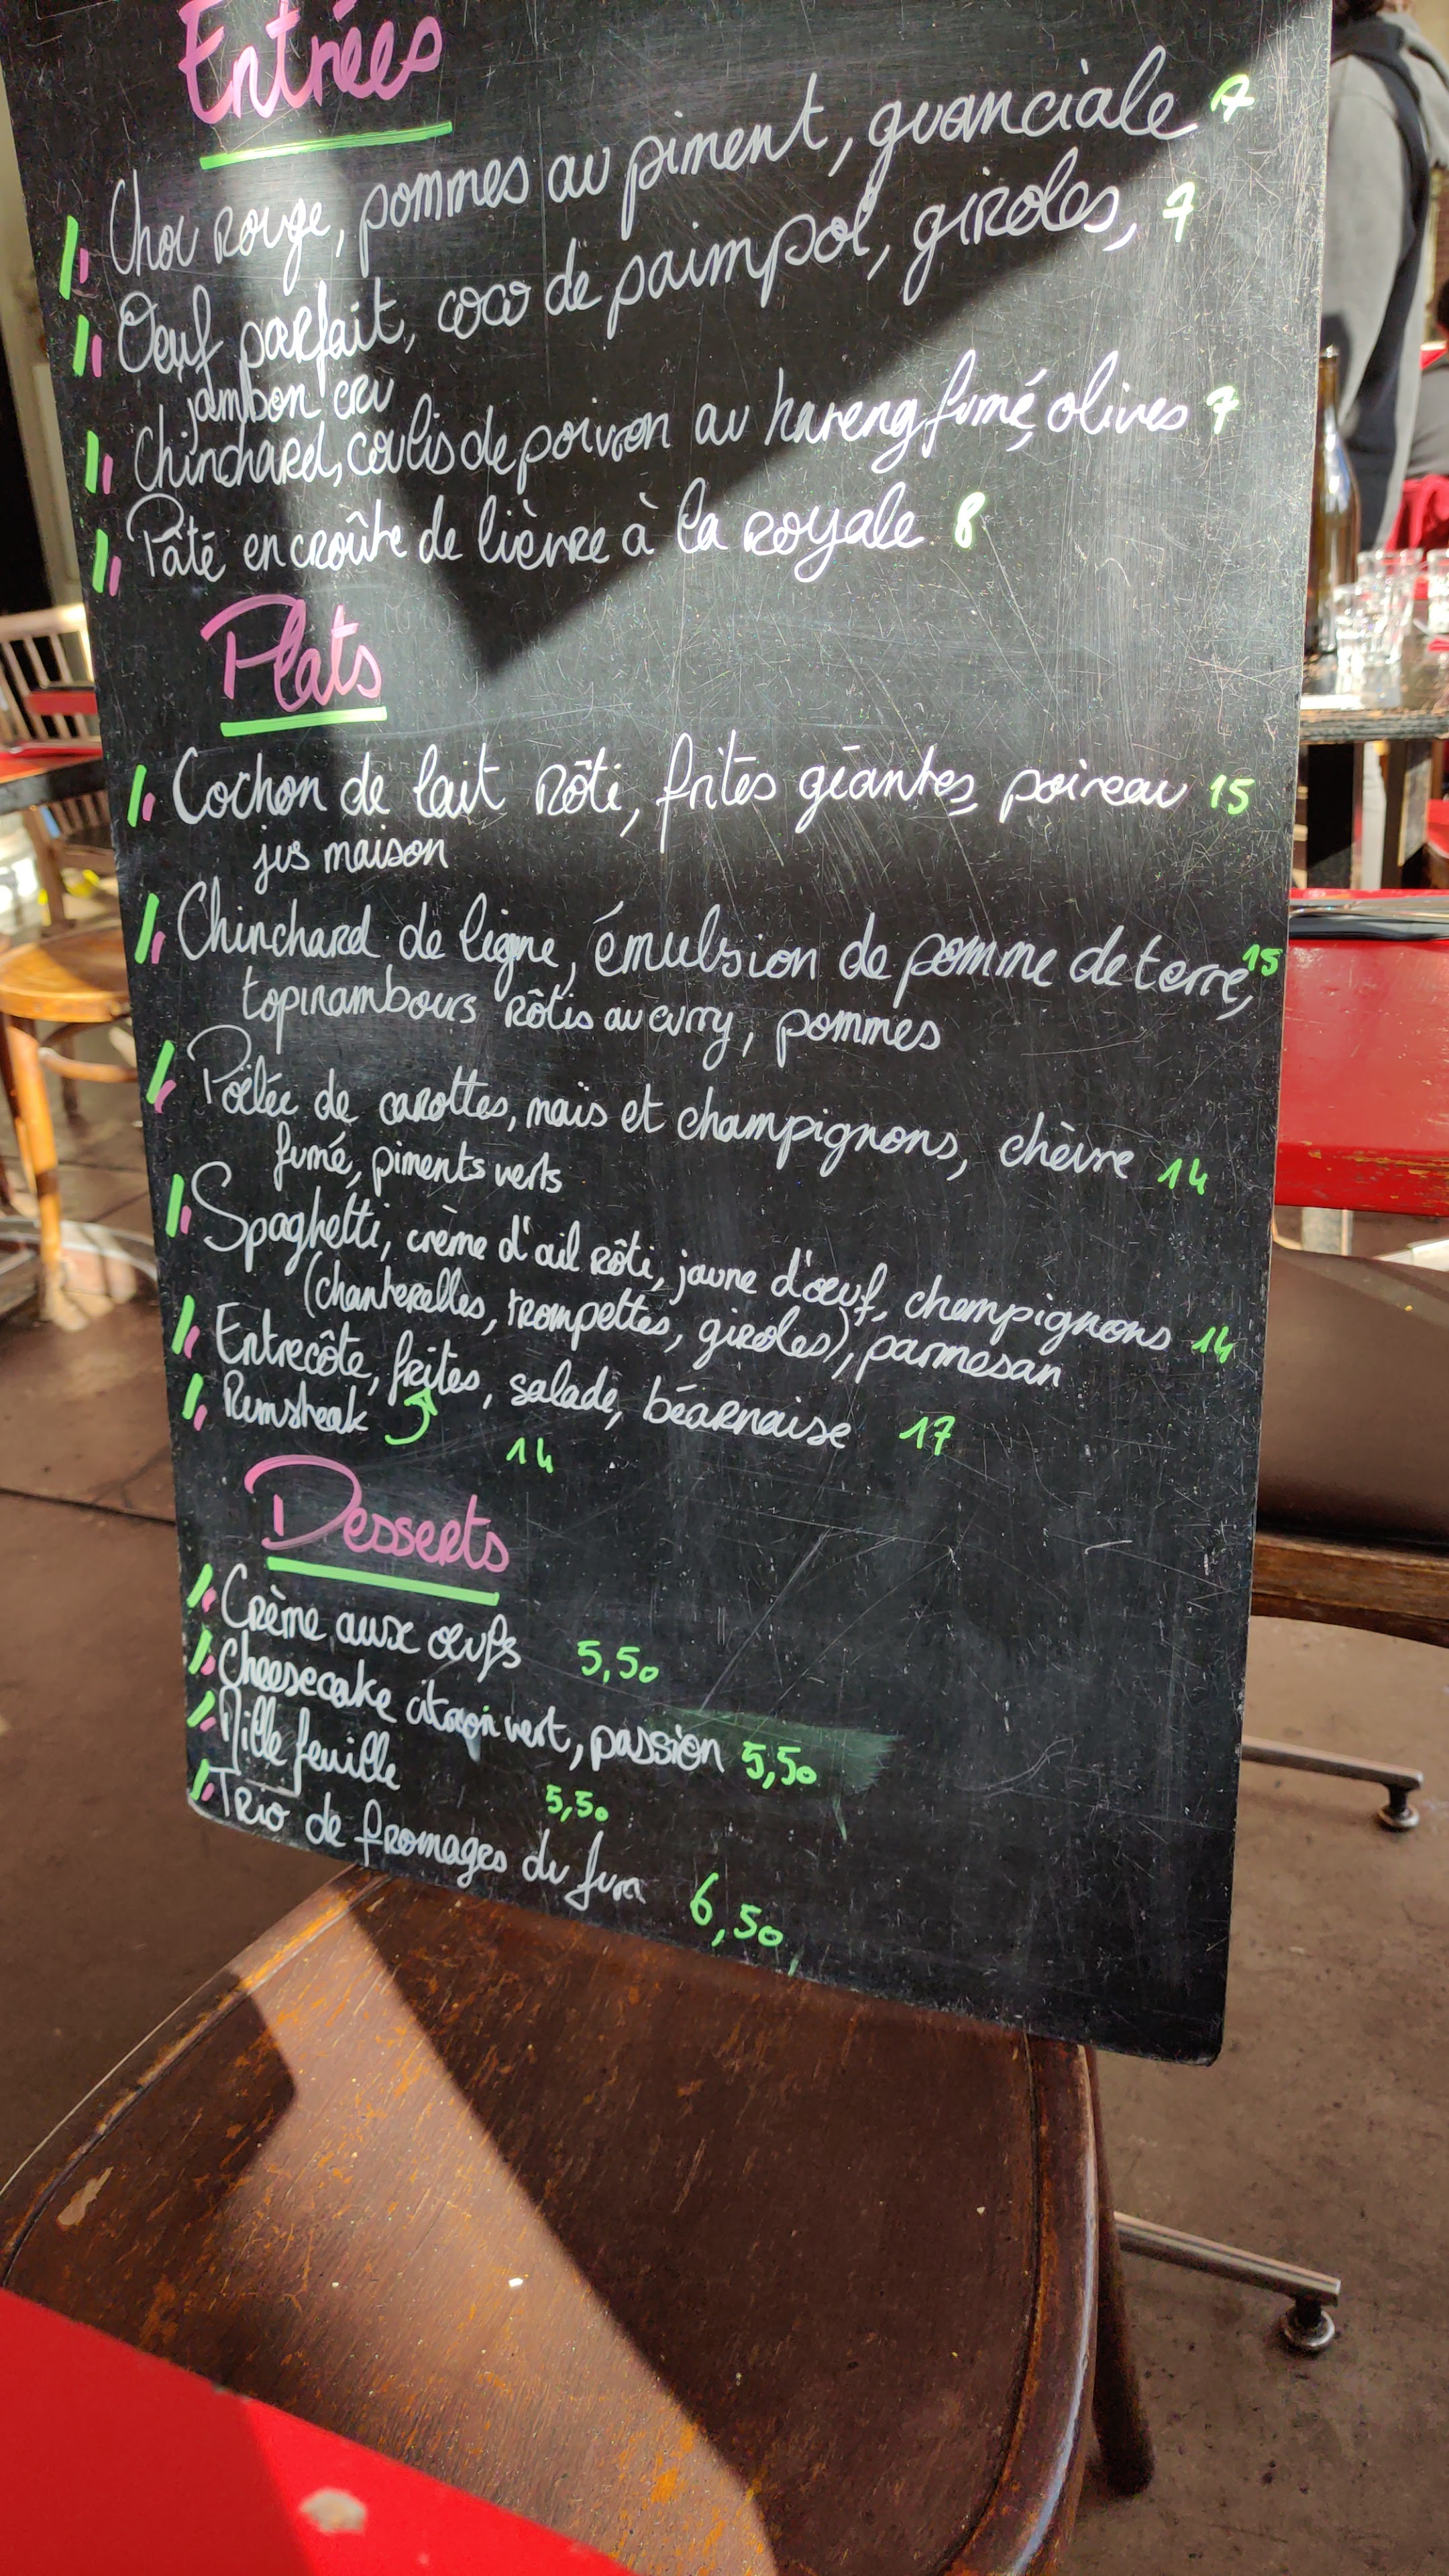 Entrées
Chou rouge, pommes au piment, guanciale 7
Oeuf parfait, coco de paimpol, giroles, 7
jambon cru
Chinchard, coulis de poivron au hareng fumé, olives 7
Pâté en croûte de lièvre à la royale 8
Plats
Cochon de lait rôti, frites géantes, poireau 15
jus maison
Chinchard de ligne, émulsion de pomme de terre, 15
topinambours rôtis au curry, pommes
Poêlée de carottes, maïs et champignons, chèvre 14
fumé, piments verts
Spaghetti, crème d'ail rôti, jaune d'œuf, champignons 14
(chanterelles, trompettes, giroles), parmesan
Entrecôte, frites, salade, béarnaise 17
Rumsteak 14
Desserts
Crème aux œufs 5,50
Cheesecake citron vert, passion 5,50
Mille feuille 5,50
Trio de fromages du Jura 6,50